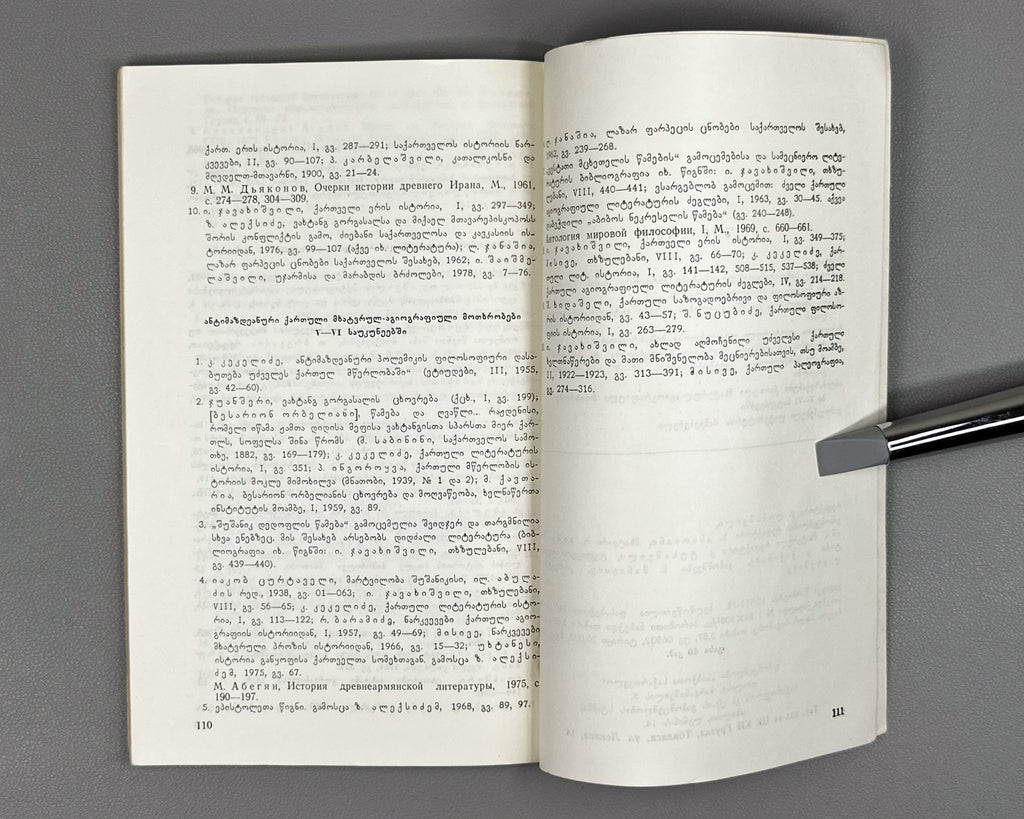 ქართ. ერის ისტორია, I, გვ. 287—291; საქართველოს ისტორიის ნარ-
კვევები, II, გვ. 90—107; პ. კარბელაშვილი, კათალიკოსნი და
მღვდელ-მთავარნი, 1900, გვ. 21—24.
9. М. М. Дьяконов, Очерки истории древнего Ирана, М., 1961,
с. 274—278, 304—309.
10. ი. ჯავახიშვილი, ქართველი ერის ისტორია, I, გვ. 297—349;
ზ. ალექსიძე, ვახტანგ გორგასალსა და მიქაელ მთავარეპისკოპოსს
შორის კონფლიქტის გამო, ძიებანი საქართველოსა და კავკასიის ის-
ტორიიდან, 1976, გვ. 99—107 (აქვე იხ. ლიტერატურა); ლ. ჯანაშია,
ლაზარ ფარპეცის ცნობები საქართველოს შესახებ, 1962; ი. შაიშმე-
ლაშვილი, უჯარმისა და მარაბდის ბრძოლები, 1978, გვ. 7—76.
ანტიმაზდეანური ქართული მხატვრულ-აგიოგრაფიული მოთხრობები
V—VI საუკუნეებში
1. კ. კეკელიძე, ანტიმაზდეანური პოლემიკის ფილოსოფიური დასა-
ბუთება უძველეს ქართულ მწერლობაში“ (ეტიუდები, III, 1955,
გვ. 42—60).
2. ჯუანშერი, ვახტანგ გორგასალის ცხოვრება (ქცხ., I, გვ. 199);
[ბესარიონ ორბელიანი], წამება და ღვაწლი... რაჟდენისი,
რომელი იწამა ჟამთა დიდისა მეფისა ვახტანგისთა სპარსთა მიერ ქარ-
თლს, სოფელსა შინა წრომს (მ. საბინინი, საქართველოს სამო-
თხე, 1882, გვ. 169—179); კ. კეკელიძე, ქართული ლიტერატურის
ისტორია, I, გვ. 351; პ. ინგოროყვა, ქართული მწერლობის ის-
ტორიის მოკლე მიმოხილვა (მნათობი, 1939, № 1 და 2); მ. ქავთა-
რია, ბესარიონ ორბელიანის ცხოვრება და მოღვაწეობა, ხელნაწერთა
ინსტიტუტის მოამბე, I, 1959, გვ. 89.
3. „შუშანიკ დედოფლის წამება“ გამოცემულია შვიდჯერ და თარგმნილია
სხვა ენებზეც. მის შესახებ არსებობს დიდძალი ლიტერატურა (ბიბ-
ლიოგრაფია იხ. წიგნში: ი. ჯავახიშვილი, თხზულებანი, VIII,
გვ. 439—440).
4. იაკობ ცურტაველი, მარტვილობა შუშანიკისი, ილ. აბულა-
ძის რედ., 1938, გვ. 01—063; ი. ჯავახიშვილი, თხზულებანი,
VIII, გვ. 56—65; კ. კეკელიძე, ქართული ლიტერატურის ისტო-
რია, I, გვ. 113—122; რ. ბარამიძე, ნარკვევები ქართული აგიო-
გრაფიის ისტორიიდან, I, 1957, გვ. 49—69; მისივე, ნარკვევები
მხატვრული პროზის ისტორიიდან, 1966, გვ. 15—32; უხტანესი,
ისტორია განყოფისა ქართველთა სომეხთაგან. გამოსცა ზ. ალექსი-
ძემ, 1975, გვ. 67.
М. Абегян, История древнеармянской литературы, 1975, с
190—197.
5. ეპისტოლეთა წიგნი. გამოსცა ზ. ალექსიძემ, 1968, გვ. 89, 97.
110
ჯანაშია, ლაზარ ფარპეცის ცნობები საქართველოს შესახებ,
1962, გვ. 239—268.
მცხეთელის წამების“ გამოცემებისა და სამეცნიერო ლიტე-
რატურის ბიბლიოგრაფია იხ. წიგნში: ი. ჯავახიშვილი, თხზუ-
ლებანი, VIII, 440—441; ვსარგებლობ გამოცემით: ძველი ქართული
აგიოგრაფიული ლიტერატურის ძეგლები, I, 1963, გვ. 30—45. აქვეა
დაბეჭდილი „აბიბოს ნეკრესელის წამება“ (გვ. 240—248).
Антология мировой философии, I, М., 1969, с. 660—661.
ი. ჯავახიშვილი, ქართველი ერის ისტორია, I, გვ. 349—375;
მისივე, თხზულებანი, VIII, გვ. 66—70; კ. კეკელიძე, ქარ-
თული ლიტ. ისტორია, I, გვ. 141—142, 508—515, 537—538; ძველი
ქართული აგიოგრაფიული ლიტერატურის ძეგლები, IV, გვ. 214—218.
შ. ხიდაშელი, ქართული საზოგადოებრივი და ფილოსოფიური აზ-
რის ისტორიიდან, გვ. 43—57; შ. ნუცუბიძე, ქართული ფილოსო-
ფიის ისტორია, I, გვ. 263—279.
ი. ჯავახიშვილი, ახლად აღმოჩენილი უძველესი ქართული
ხელთნაწერები და მათი მნიშვნელობა მეცნიერებისათვის, თსუ მოამბე,
II, 1922—1923, გვ. 313—391; მისივე, ქართული პალეოგრაფია,
გვ. 274—316.
111